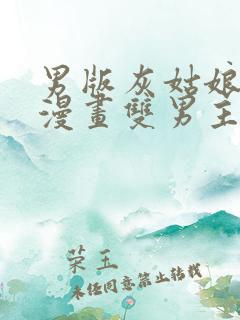 男版灰姑娘
漫畫雙男主
荣玉
未经同意禁止转载